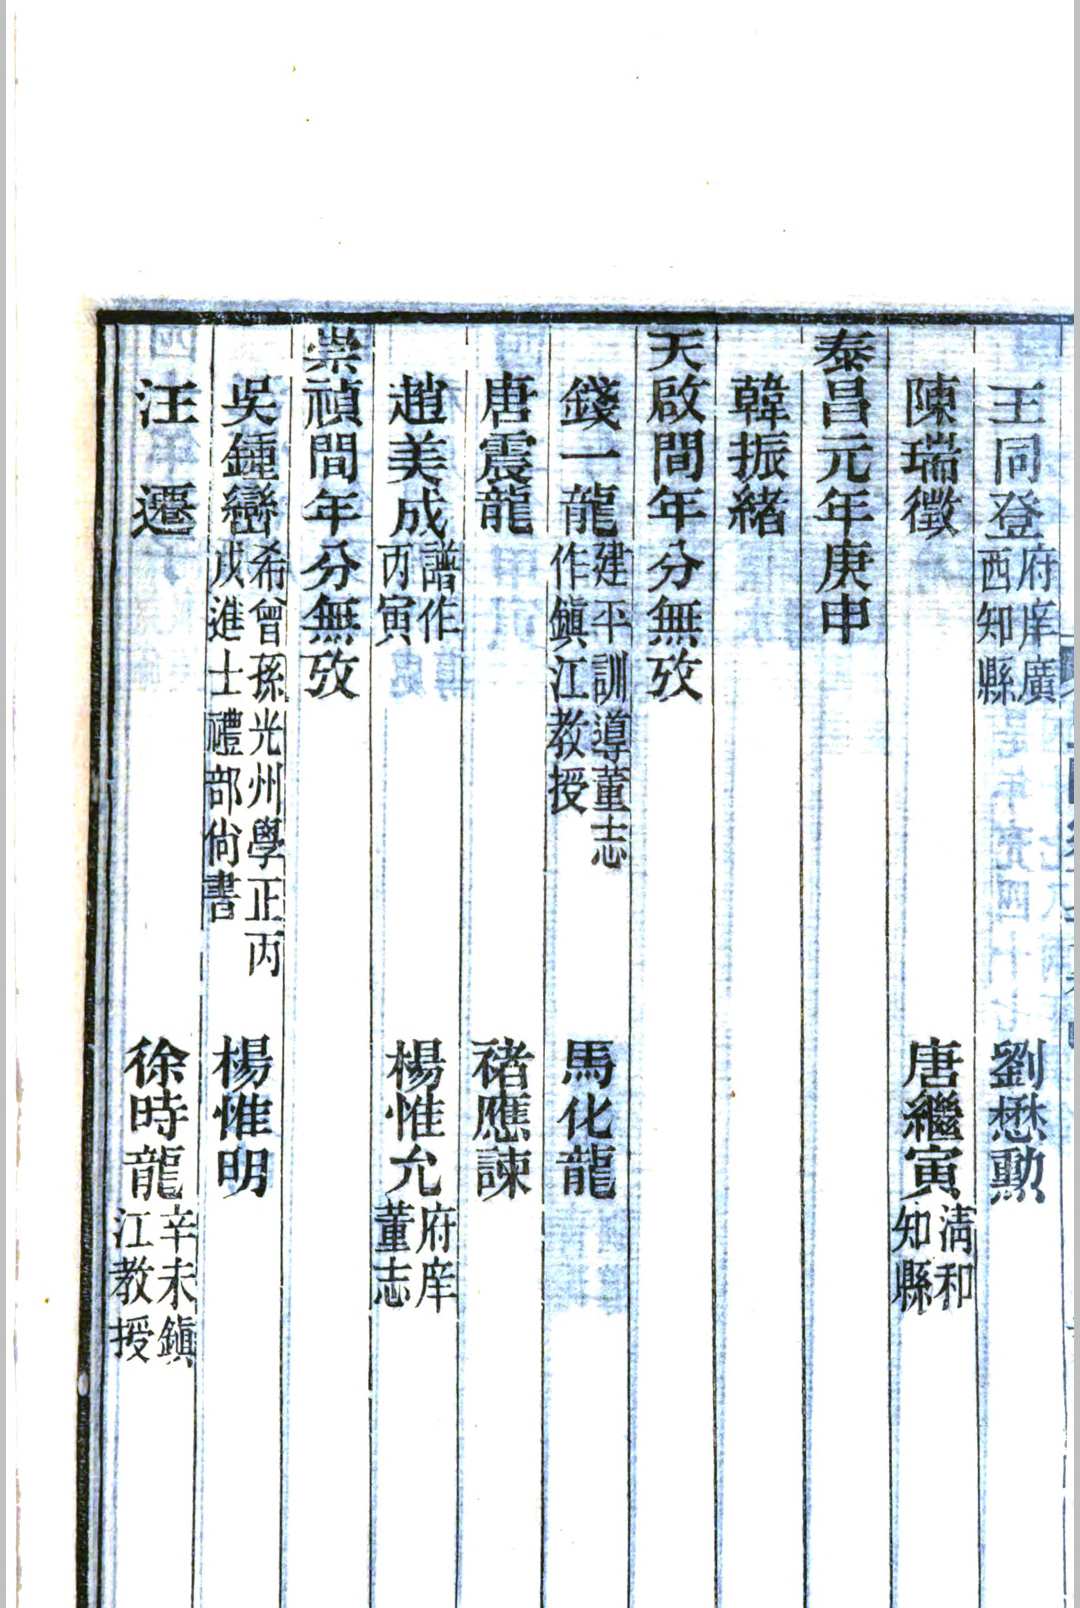 王同登 府庠廣西知縣 劉懋勳
陳瑞徵 唐繼寅 淸和知縣
泰昌元年庚申
韓振緒
天啟間年分無攷
錢一龍 建平訓導董志作鎭江教授 馬化龍
唐震龍 禇應諫
趙美成 譜作丙寅 楊惟允 府庠董志
崇禎間年分無攷
吳鍾巒 希曾孫光州學正丙戌進士禮部尙書 楊惟明
汪遷 徐時龍 辛未鎭江教授